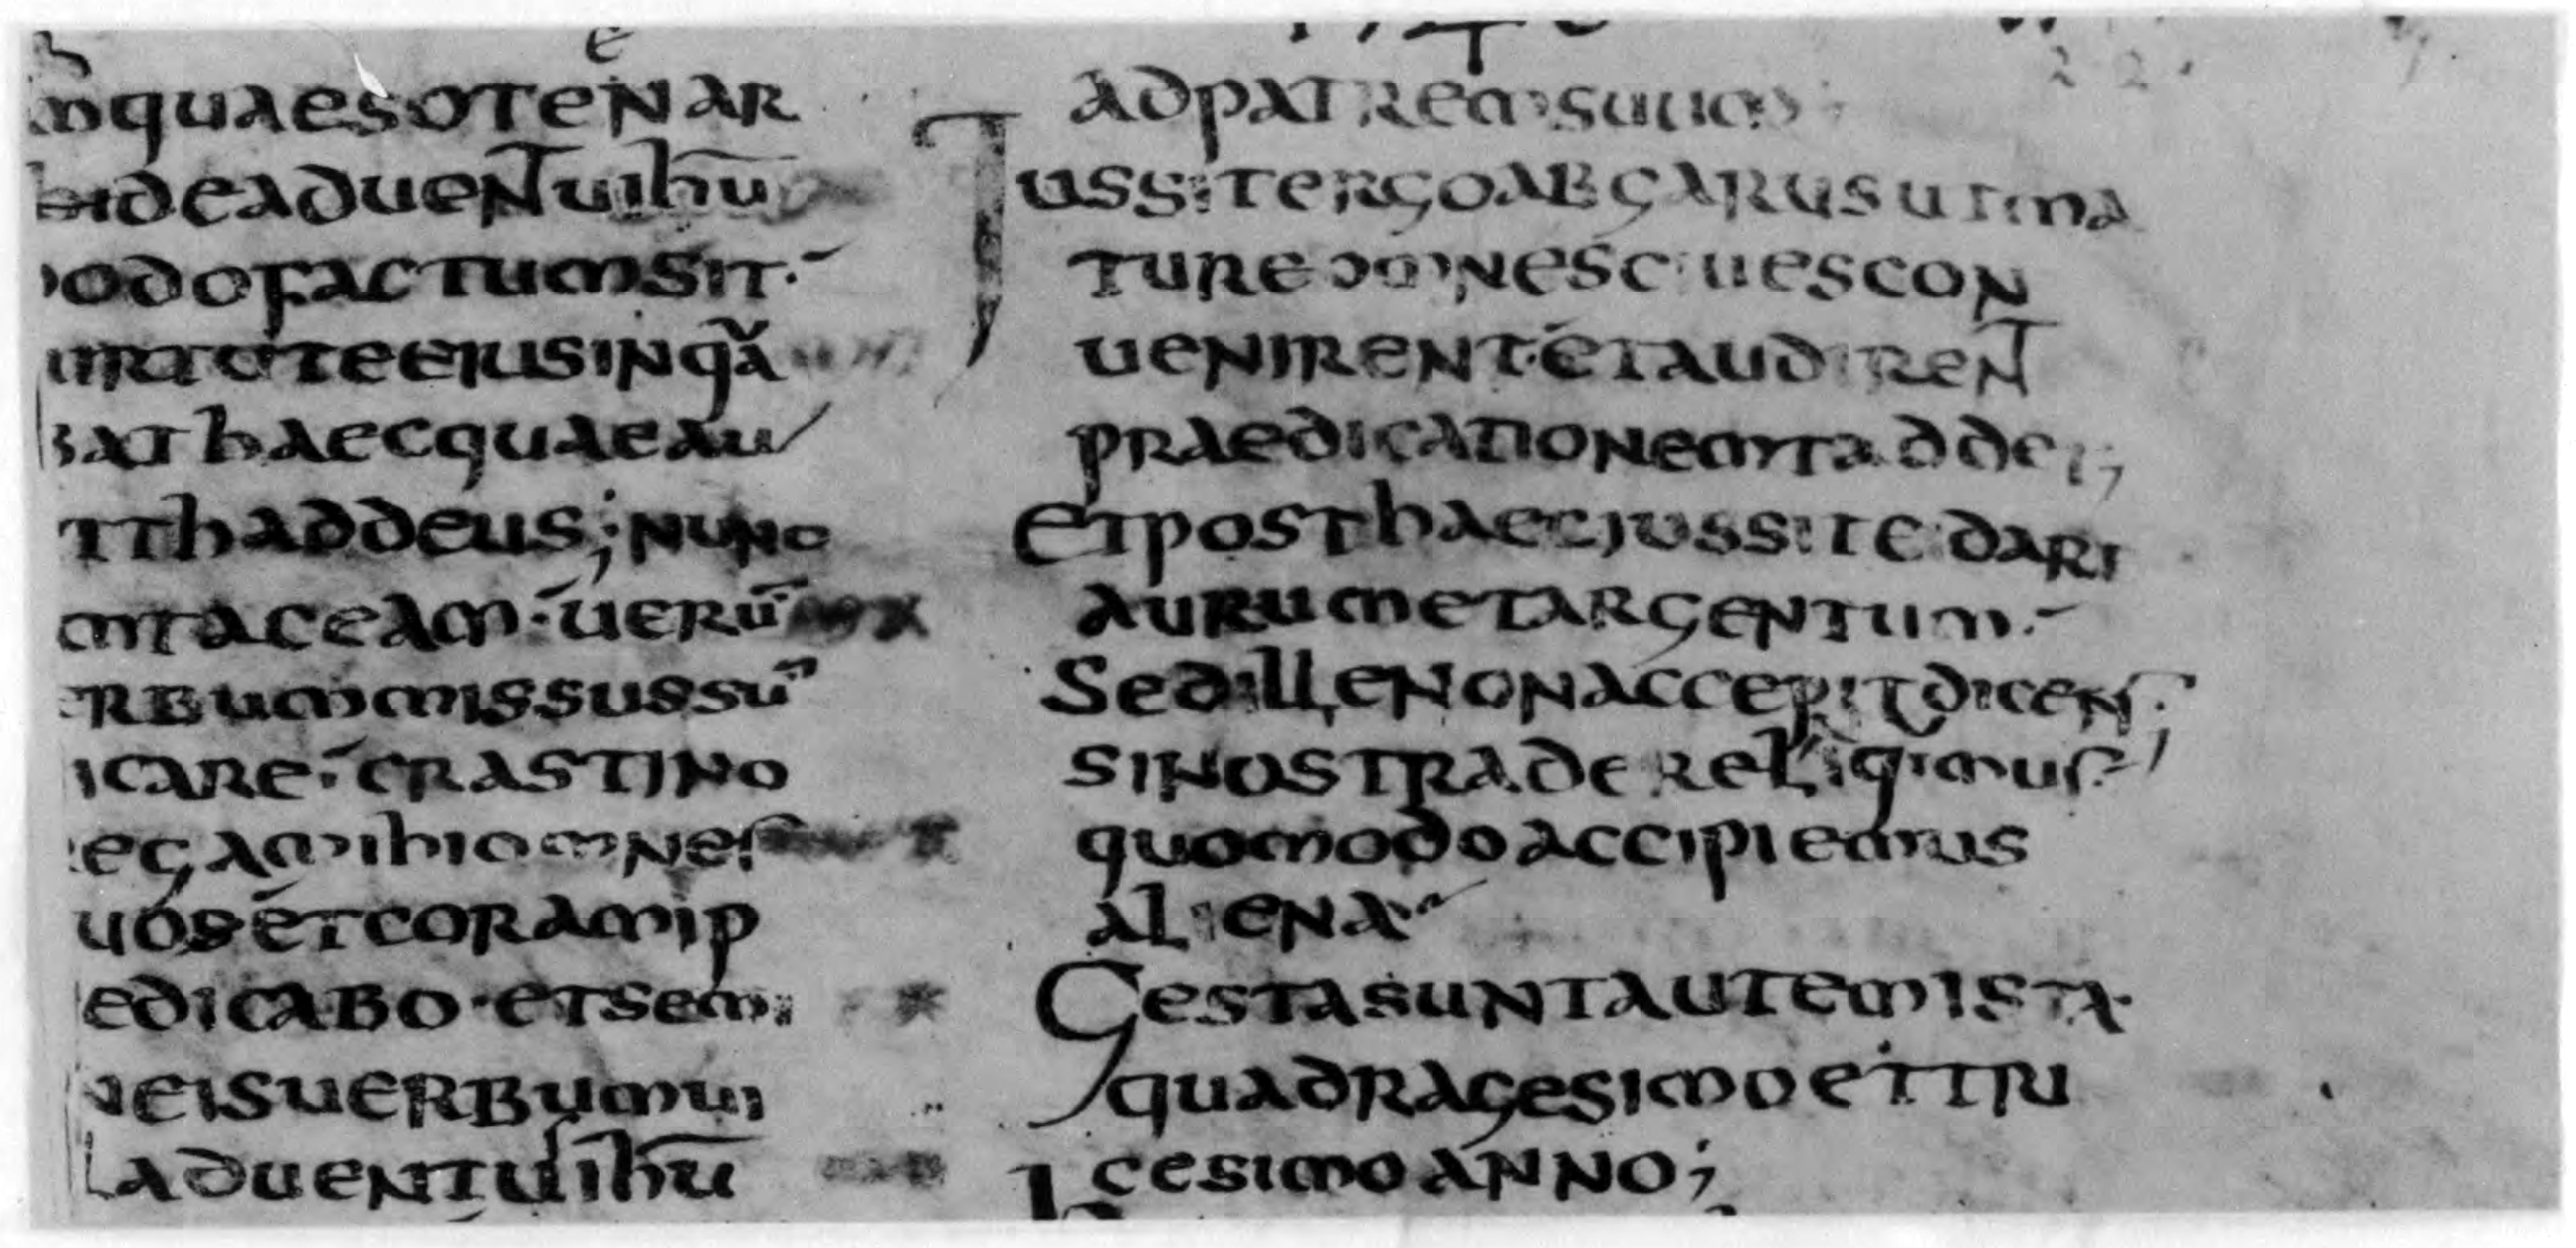 quaeso te nar
de aduentu ihu
odo factum sit
uirtute eius in qua
bat haec quae au
t thaddeus; nunc
m taceam uerū
erbum missus sū
icare crastino
ega mihi omnes
uos et coram ip
edicabo et semi
n eis uerbum ui
aduentu ihu
ad patrem suum
Iussit ergo abgarus ut ma
ture omnes ciues con
uenirent et audirent
praedicationem taddei;
Et post haec iussit ei dari
aurum et argentum
Sed ille non accepit dicens
si nostra dereliqimus
quomodo accipiemus
aliena
Gesta sunt autem ista
quadragesimo et tri
cesimo anno;